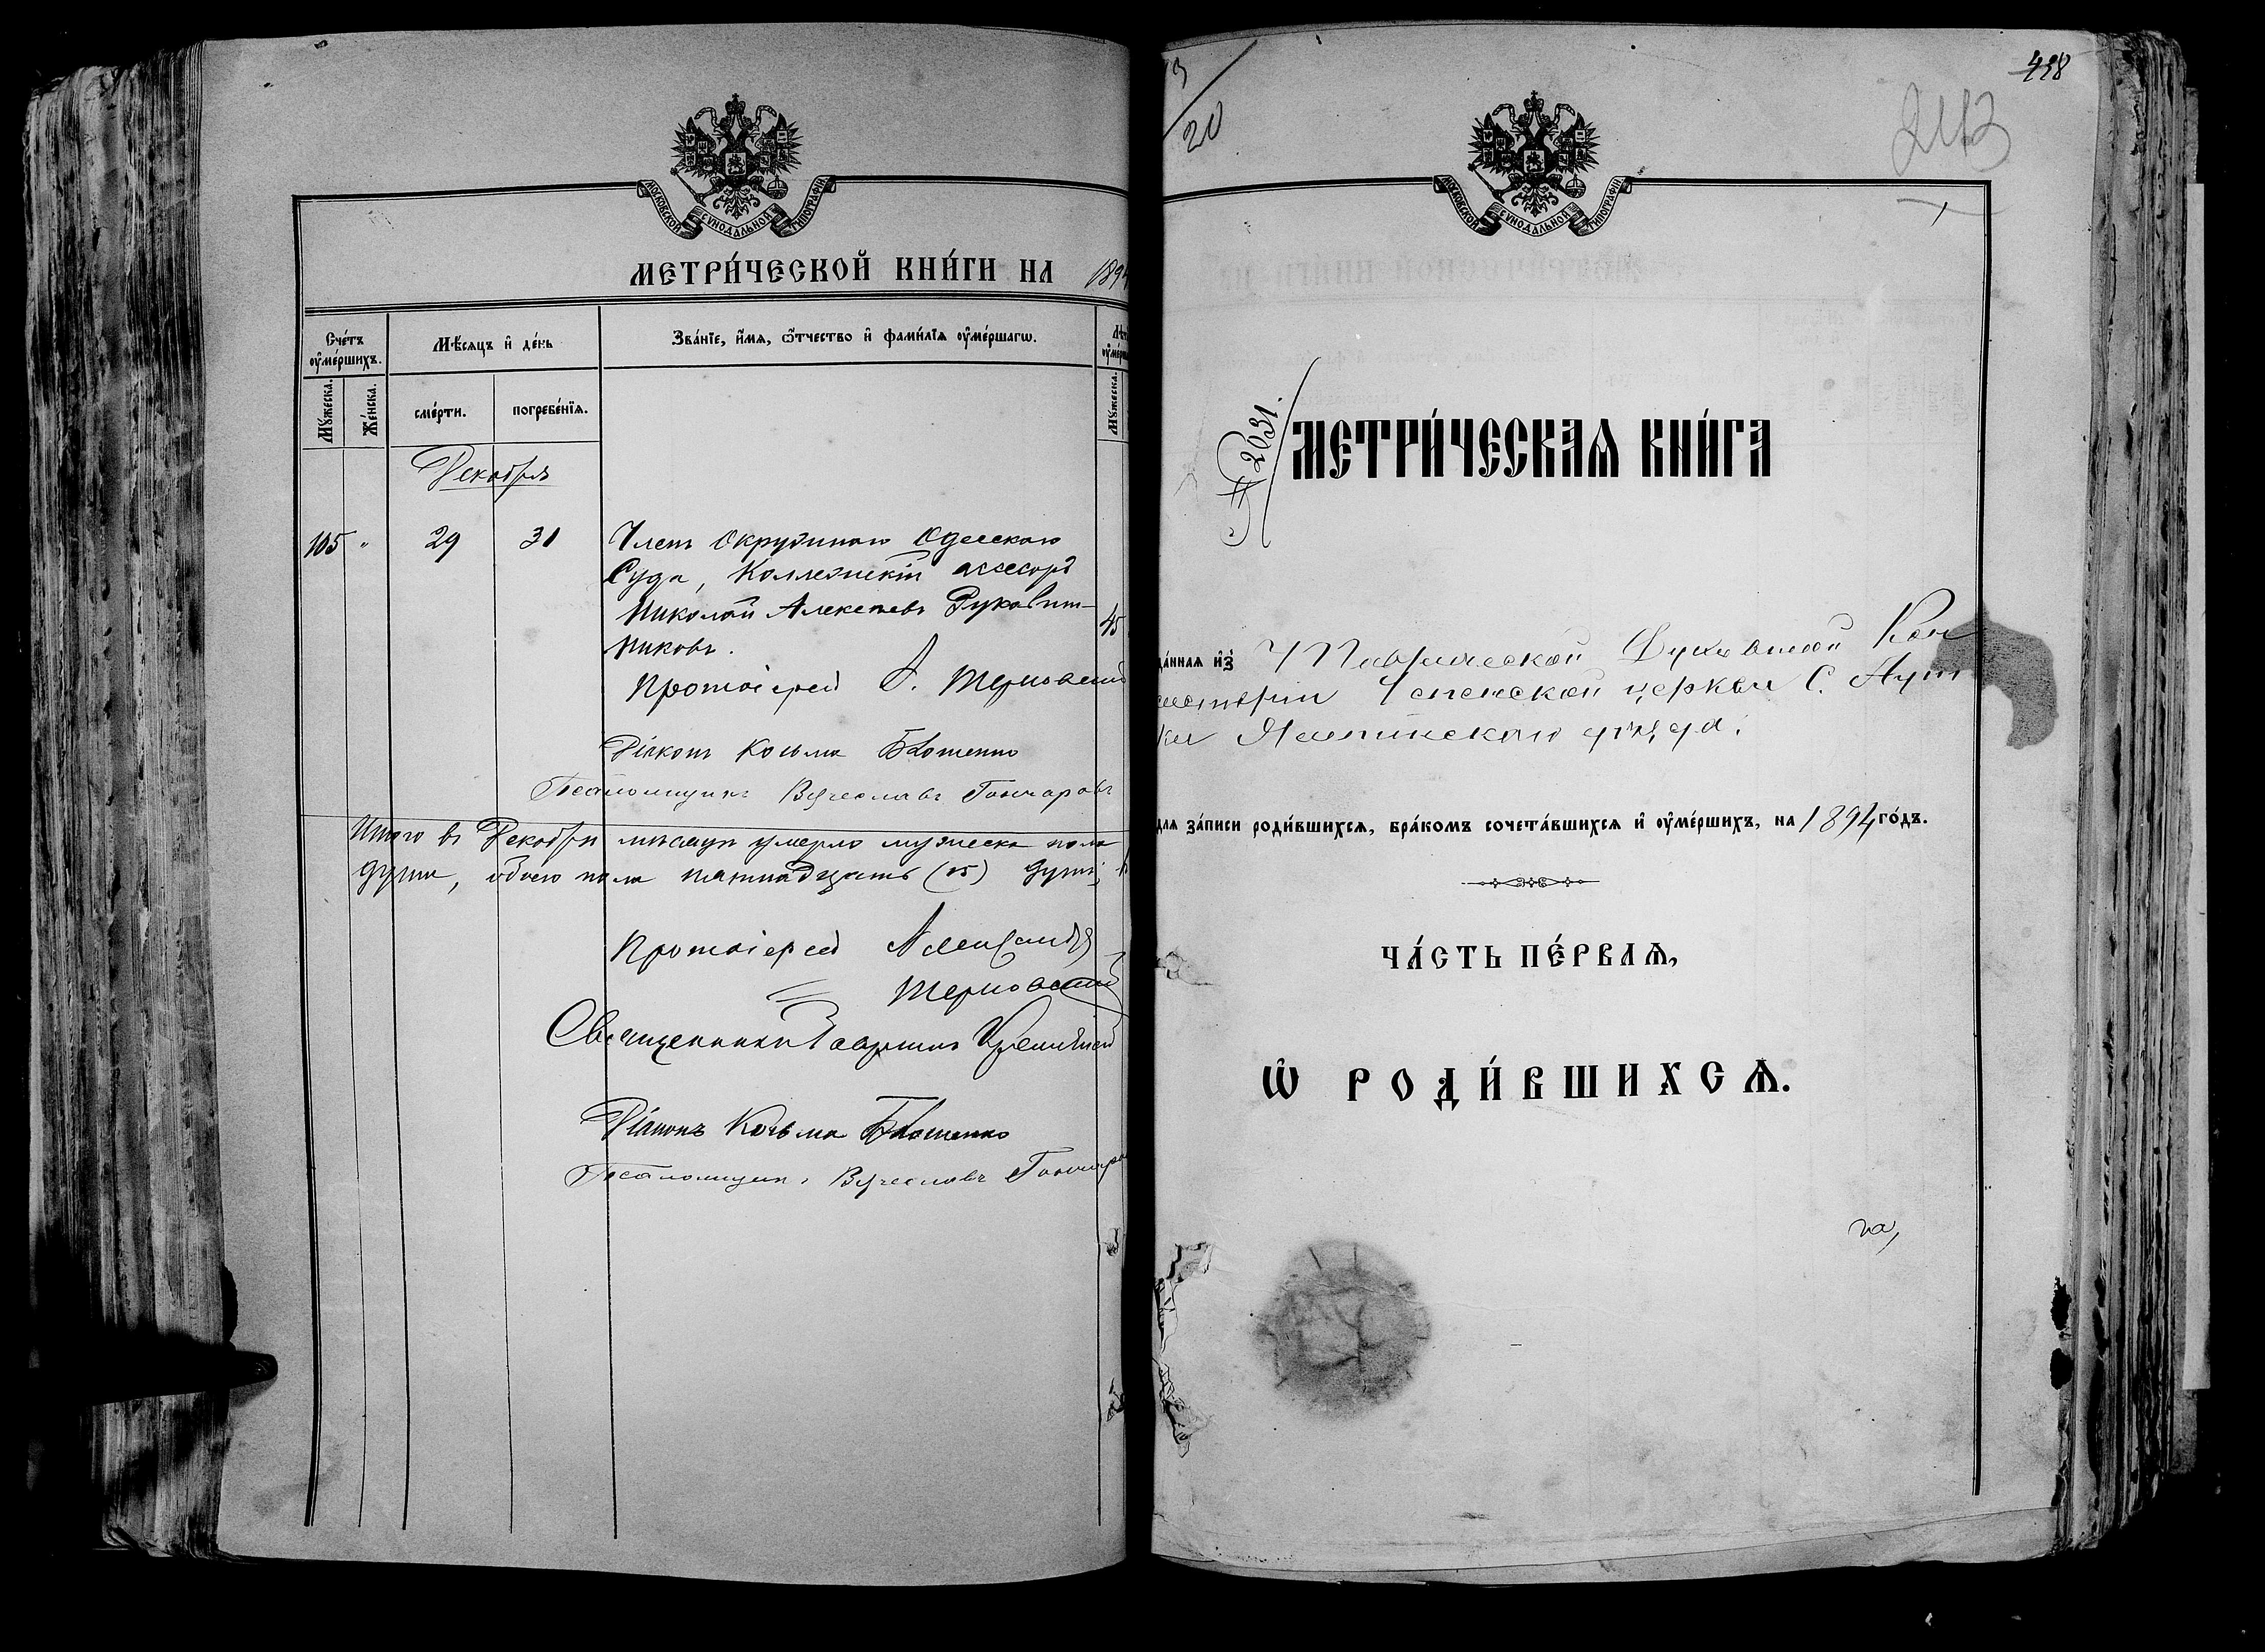 МОСКОВСКОЙ СѴНОДАЛЬНОЙ ТИПОГРАФІИ
МЕТРИ́ЧЕСКОЙ КНИ́ГИ НА 1894
Сче́тъ оу҆ме́ршихъ.
Мѣ́сяцъ и҆ де́нь
Зва́нїе, и҆́мя, ѻ҆́тчество и҆ фами́лїя оу҆ме́ршагѡ.
Мꙋ́жеска.
Же́нска.
сме́рти.
погребе́нїя.
Мꙋ́жеска.
Декабрь
105 " 29 31 Членъ Окружнаго Одесскаго
Суда, Коллежскій ассесоръ
Николай Алексѣевъ Рукавиш-
никовъ. 45
Протоіерей А. Терновскій
Діаконъ Козьма Блошенко
Псаломщикъ Вячеславъ Гончаровъ
Итого въ Декабрѣ мѣсяцѣ умерло мужеска пола
душъ, обоего пола пятнадцать (15) душъ,
Протоіерей Александръ
Терновскій
Священникъ Гавріилъ
Діаконъ Козьма Блошенко
Псаломщикъ Вячеславъ Гончаро
20
438
243
МОСКОВСКОЙ СѴНОДАЛЬНОЙ ТИПОГРАФІИ
№ 2031.
МЕТРИ́ЧЕСКАѦ КНИ́ГА
да́нная и҆з̾ Таврической Духовной Кон
систоріи Успенской церкви С. Аут
ки Ялтинского уѣзда.
для за́писи роди́вшихся, бра́комъ сочета́вшихся и҆ оу҆ме́ршихъ, на 1894 го́дъ.
ЧА́СТЬ ПЕ́РВАѦ,
Ѽ РОДИ́ВШИХСѦ.